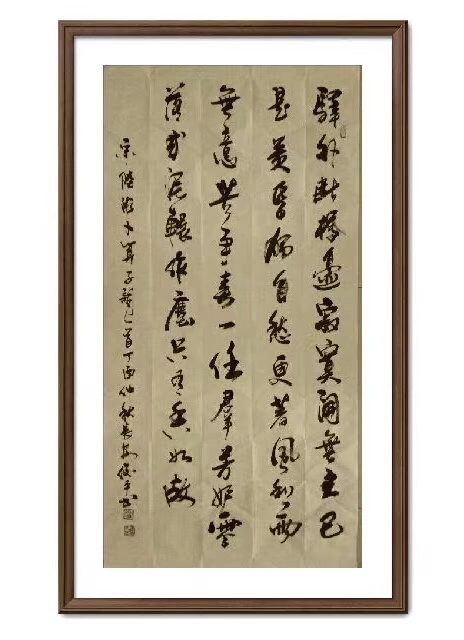 驛外斷橋邊寂寞開無主已
是黃昏獨自愁更著風和雨
無意苦爭春一任羣芳妒零
落成泥輾作塵只有香如故
宋陸游卜算子一首丁酉仲秋長安書